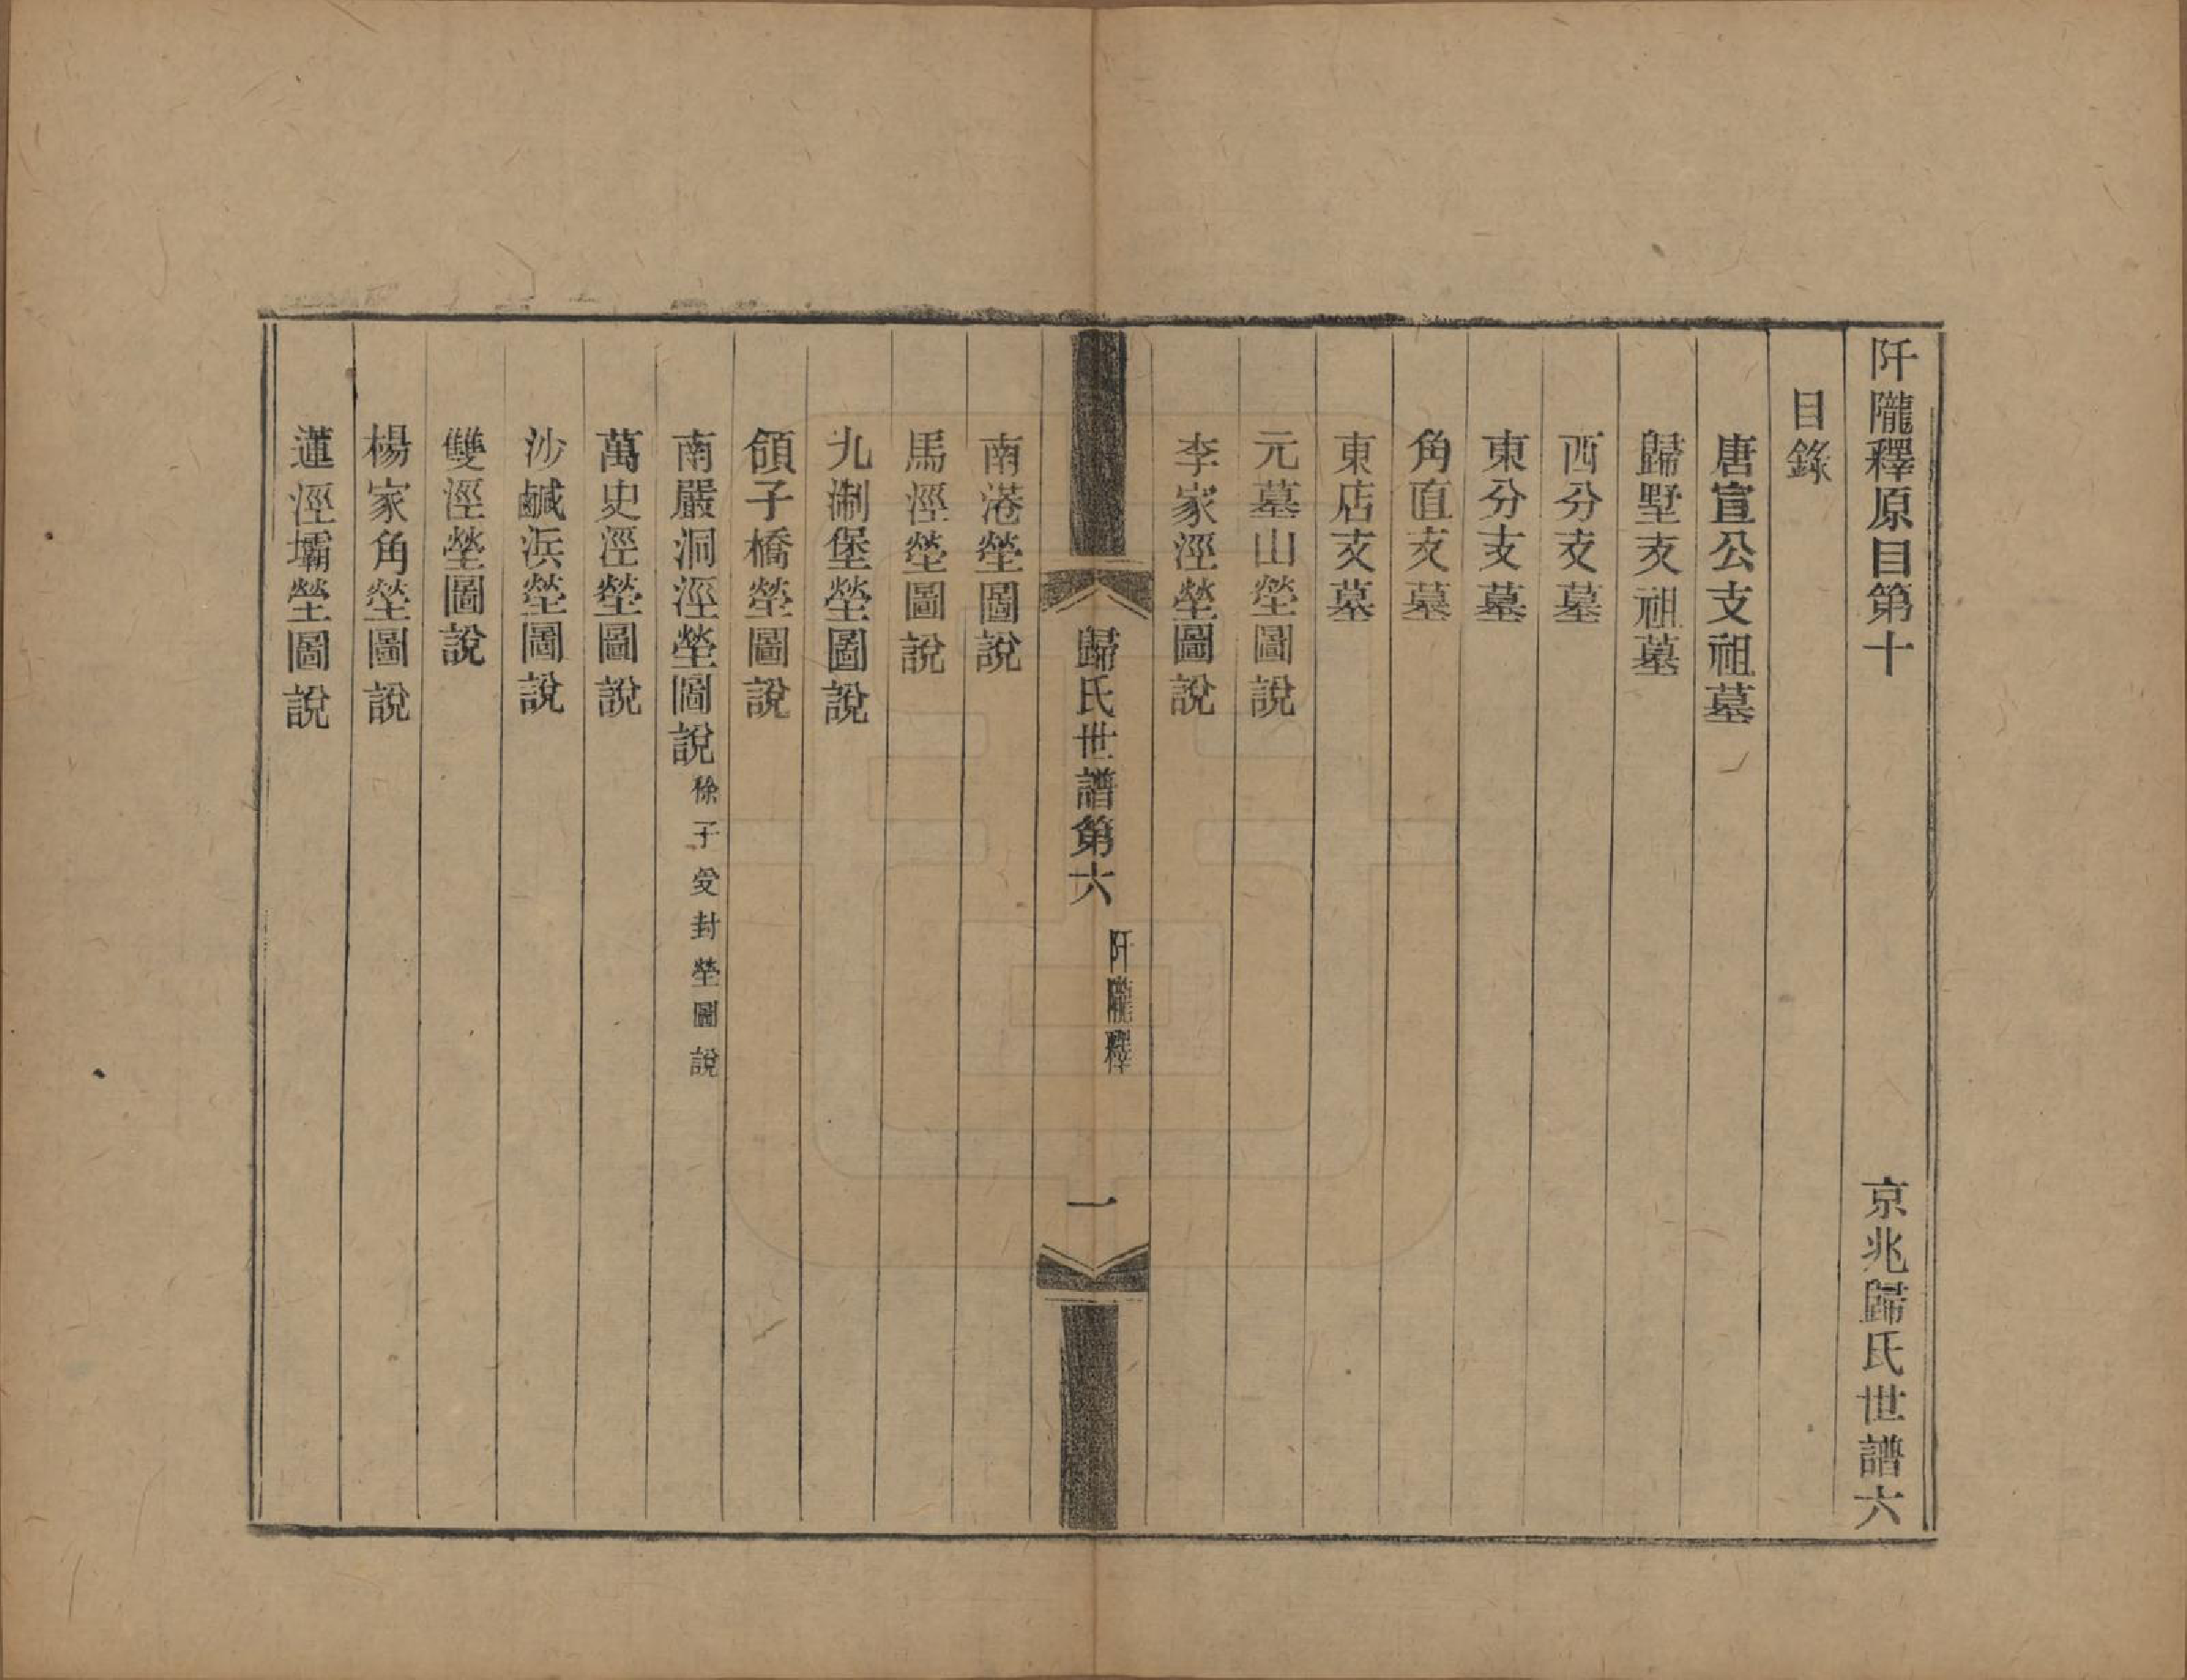 阡隴釋原目第十　京兆歸氏世譜六
目錄
唐宣公支祖墓
歸墅支祖墓
西分支墓
東分支墓
角直支墓
東店支墓
元墓山塋圖說
李家涇塋圖說
歸氏世譜第六　阡隴釋　一
南港塋圖說
馬涇塋圖說
九淛堡塋圖說
頜子橋塋圖說
南嚴洞涇塋圖說徐子受封塋圖說
萬史涇塋圖說
沙鹹浜塋圖說
雙涇塋圖說
楊家角塋圖說
蓮涇壩塋圖說